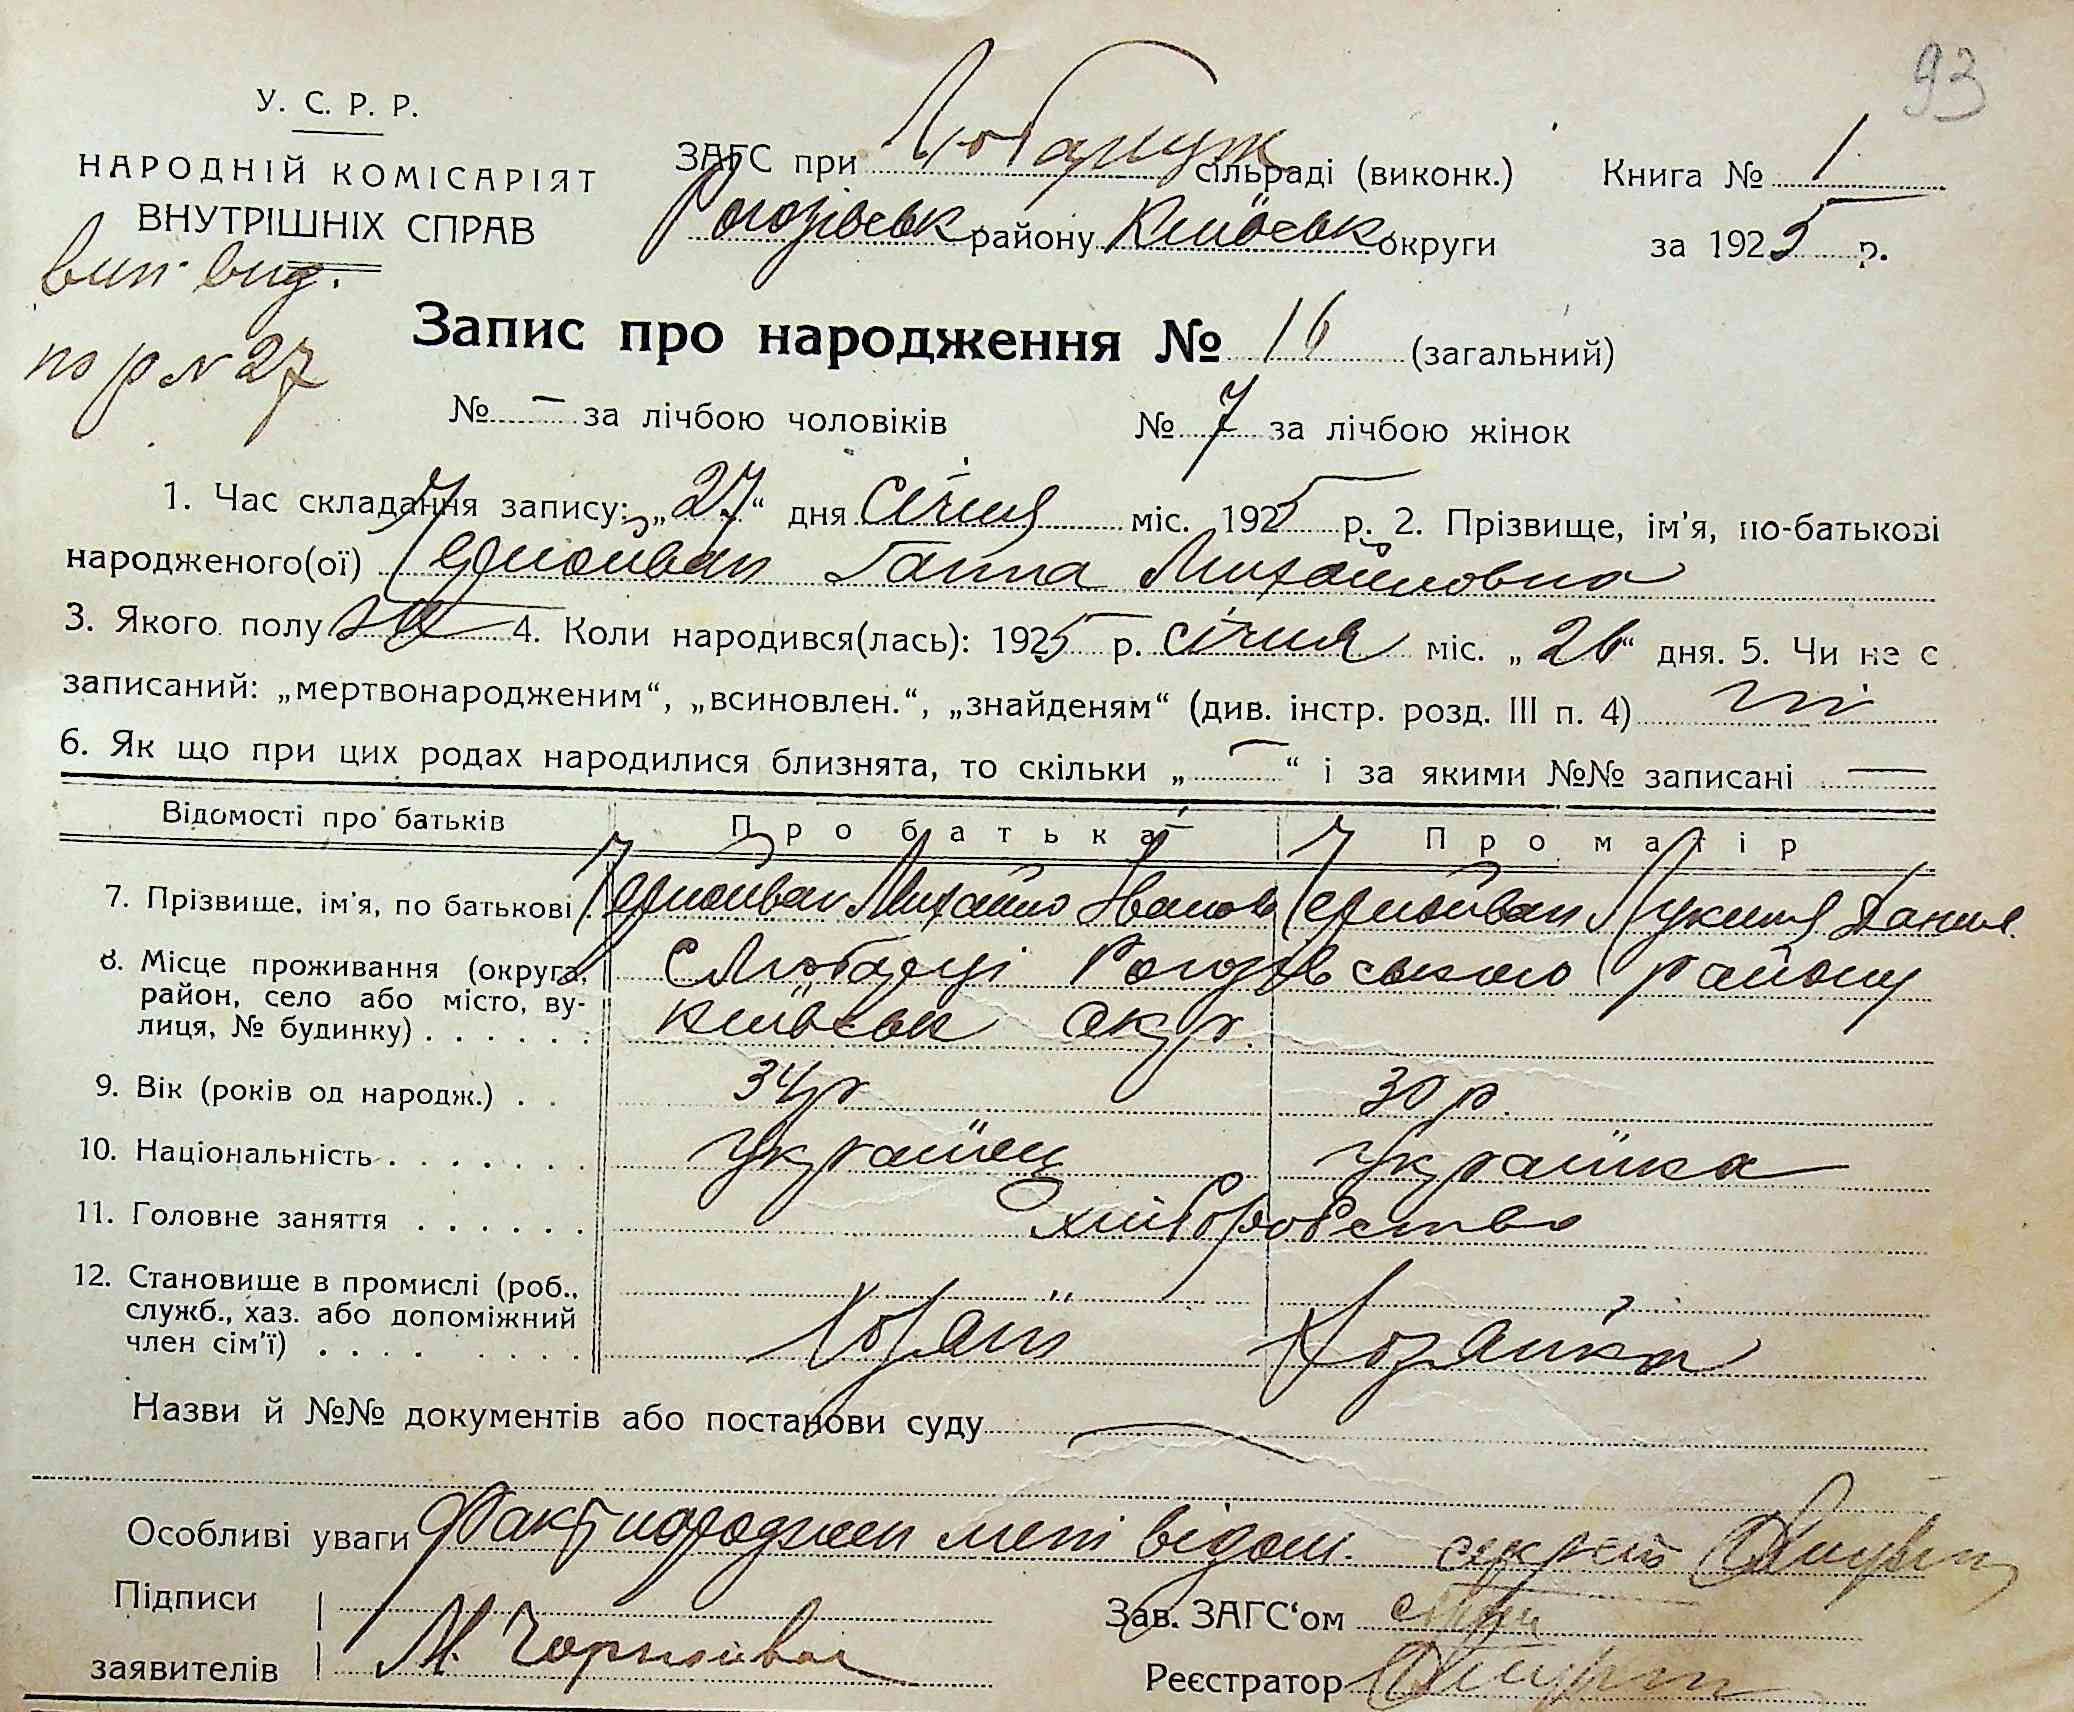 93
У. С. Р. Р.
НАРОДНІЙ КОМІСАРІЯТ
ВНУТРІШНІХ СПРАВ
ЗАГС при Любарцуж сільраді (виконк.) Книга № 1
Рогозівськ району Київськ округи за 1925 р.
вип. вид.
по р N 27
Запис про народження № 16 (загальний)
№ – за лічбою чоловіків № 7 за лічбою жінок
1. Час складання запису: „27“ дня Січня міс. 1925 р. 2. Прізвище, ім'я, по-батькові
народженого(ої) Чорноіван Ганна Михайловна
3. Якого полу 4. Коли народився(лась): 1925 р. січня міс. „26“ дня. 5. Чи не є
записаний: „мертвонародженим“, „всиновлен.“, „знайденям“ (див. інстр. розд. III п. 4) ні
6. Як що при цих родах народилися близнята, то скільки „–“ і за якими №№ записані —
Відомості про батьків Про батька Про матір
7. Прізвище, ім'я, по батькові Чорноіван Михайло Іванов Чорноіван Лукина Данил.
8. Місце проживання (округа, с Любарці Рогозівського району
район, село або місто, ву-
лиця, № будинку) Київськ окр.
9. Вік (років од народж.) 34 р 30 р.
10. Національність українец українка
11. Головне заняття хліборобство
12. Становище в промислі (роб.,
служб., хаз. або допоміжний
член сім'ї) Хозяїн Хозяйка
Назви й №№ документів або постанови суду —
Особливі уваги Факт народжен мені відом. секрет
Підписи Зав. ЗАГС'ом
заявителів М. Чорноіван Реєстратор